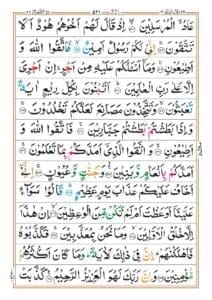 ٥٢١
عَادُ ۨالْمُرْسَلِيْنَ ۝ اِذْ قَالَ لَهُمْ اَخُوْهُمْ هُوْدٌ اَلَا
تَتَّقُوْنَ ۝ اِنِّيْ لَكُمْ رَسُوْلٌ اَمِيْنٌ ۝ فَاتَّقُوا اللّٰهَ وَ
اَطِيْعُوْنِ ۝ وَمَآ اَسْـَٔلُكُمْ عَلَيْهِ مِنْ اَجْرٍ اِنْ اَجْرِيَ
اِلَّا عَلٰى رَبِّ الْعٰلَمِيْنَ ۝ اَتَبْنُوْنَ بِكُلِّ رِيْعٍ اٰيَةً
تَعْبَثُوْنَ ۝ وَتَتَّخِذُوْنَ مَصَانِعَ لَعَلَّكُمْ تَخْلُدُوْنَ ۝
وَاِذَا بَطَشْتُمْ بَطَشْتُمْ جَبَّارِيْنَ ۝ فَاتَّقُوا اللّٰهَ وَ
اَطِيْعُوْنِ ۝ وَاتَّقُوا الَّذِيْٓ اَمَدَّكُمْ بِمَا تَعْلَمُوْنَ ۝
اَمَدَّكُمْ بِاَنْعَامٍ وَّبَنِيْنَ ۝ وَجَنّٰتٍ وَّعُيُوْنٍ ۝ اِنِّيْٓ
اَخَافُ عَلَيْكُمْ عَذَابَ يَوْمٍ عَظِيْمٍ ۝ قَالُوْا سَوَآءٌ
عَلَيْنَآ اَوَعَظْتَ اَمْ لَمْ تَكُنْ مِّنَ الْوٰعِظِيْنَ ۝ اِنْ هٰذَآ
اِلَّا خُلُقُ الْاَوَّلِيْنَ ۝ وَمَا نَحْنُ بِمُعَذَّبِيْنَ ۝ فَكَذَّبُوْهُ
فَاَهْلَكْنٰهُمْ اِنَّ فِيْ ذٰلِكَ لَاٰيَةً وَمَا كَانَ اَكْثَرُهُمْ
مُّؤْمِنِيْنَ ۝ وَاِنَّ رَبَّكَ لَهُوَ الْعَزِيْزُ الرَّحِيْمُ ۝ كَذَّبَتْ